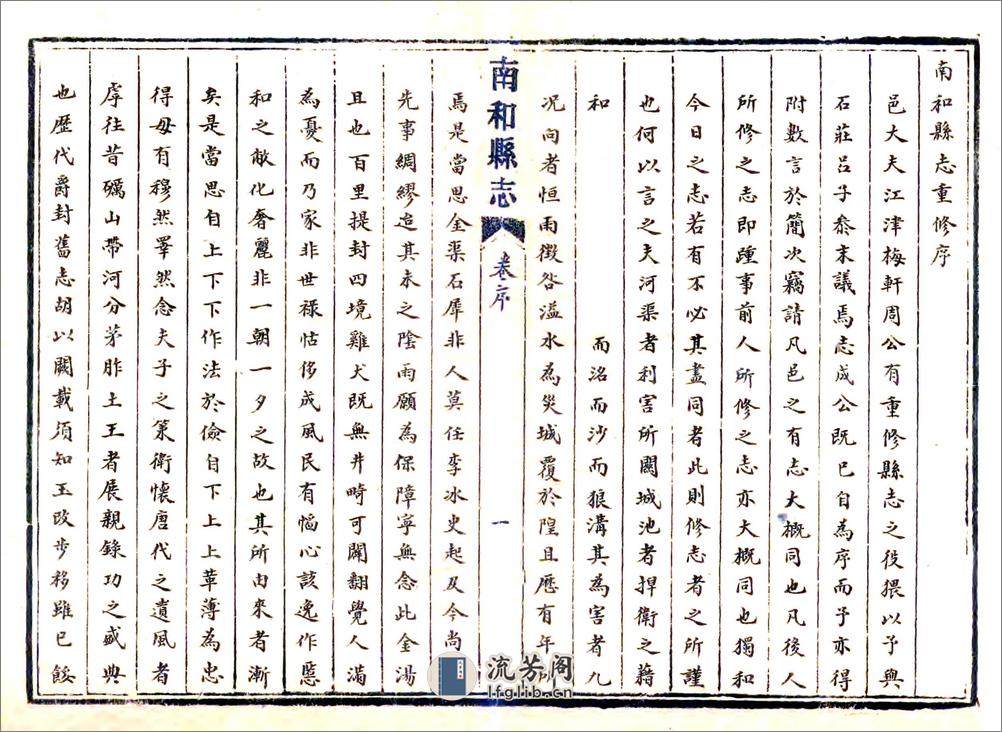 南和縣志重修序
邑大夫江津梅軒周公有重修縣志之役猥以予與
石莊呂子忝末議焉志成公既已自為序而予亦得
附數言於簡次竊請凡邑之有志大概同也凡後人
所修之志即踵事前人所修之志亦大概同也獨和
今日之志若有不必其盡同者此則修志者之所謹
也何以言之夫河渠者利害所關城池者捍衛之藉
和 而洺而沙而狼溝其為害者九
況向者恒雨徵咎溢水為災城覆於隍且歷有年
南和縣志 卷序 一
焉是當思金渠石犀非人莫任李冰史起及今尚
先事綢繆迨其未之陰雨願為保障寧無念此金湯
且也百里提封四境雞犬既無井畸可闢翻覺人滿
為憂而乃家非世祿怙侈成風民有惼心該逸作慝
和之敝化奢麗非一朝一夕之故也其所由來者漸
矣是當思自上下下作法於儉自下上上革薄為忠
得毋有穆然睪然念夫子之策衛懷唐代之遺風者
虖往昔礪山帶河分茅胙土王者展親錄功之盛典
也歷代爵封舊志胡以闕載須知玉改步移雖已餒
流芳阁
lfglib.cn